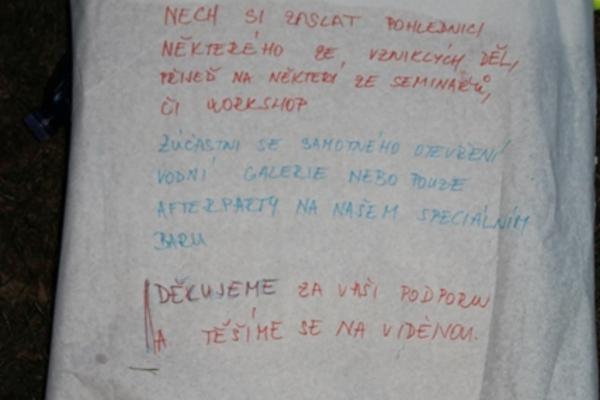 NECH SI ZASLAT POHLEDNICI
NĚKTERÉHO ZE VZNIKLÝCH DĚL,
PŘIJEĎ NA NĚKTERÝ ZE SEMINÁŘŮ,
ČI WORKSHOP
ZÚČASTNI SE SAMOTNÉHO OTEVŘENÍ
VODNÍ GALERIE NEBO POUZE
AFTERPARTY NA NAŠEM SPECIÁLNÍM
BARU
DĚKUJEME ZA VAŠI PODPORU
A TĚŠÍME SE NA VIDĚNOU.